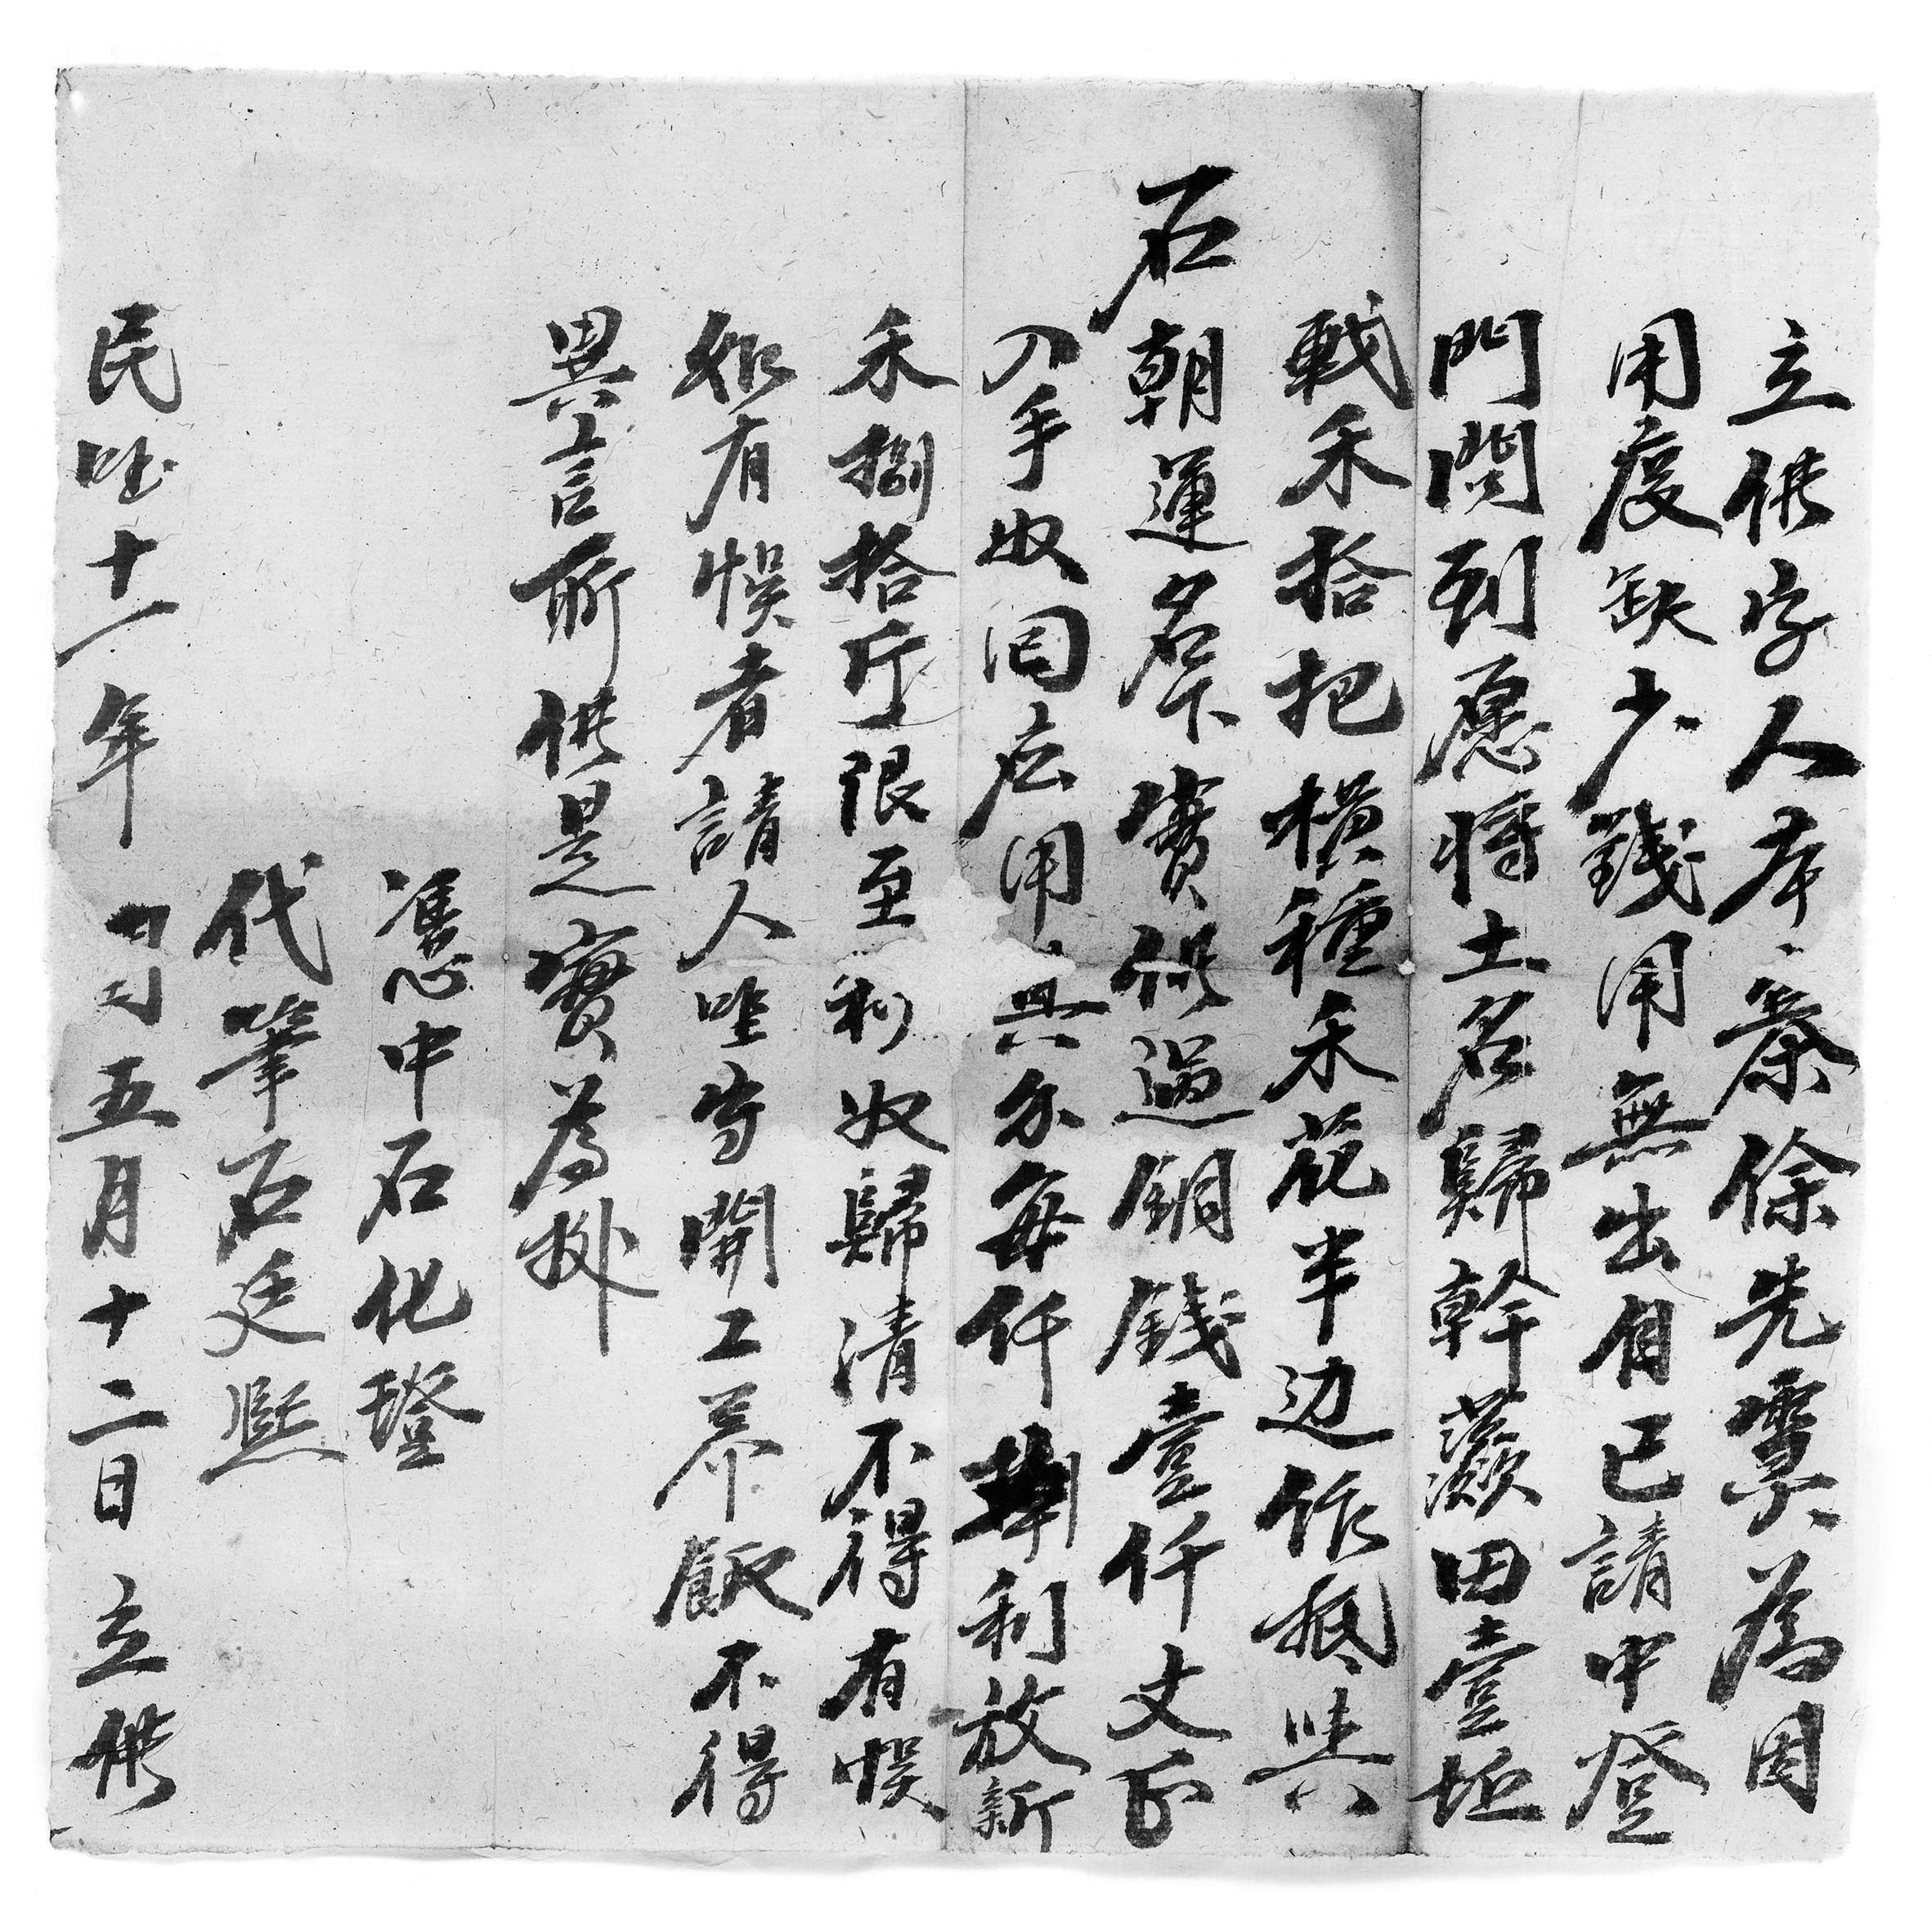 立供字人本寨徐先雲為因
用度缺少錢用無出自己請中登
門問到愿将土名歸幹蕨田壹坵
戟禾拾把横種禾花半边作抵與
石朝運名下實供過銅錢壹仟文正
入手收回应用其分每仟捌利放新
禾捌拾斤限至秋收歸清不得有悮
如有悮者請人哇等開工养飯不得
異言所供是實為拠
憑中石化璒
代筆石廷熙
民國十一年 月五月十二日 立供